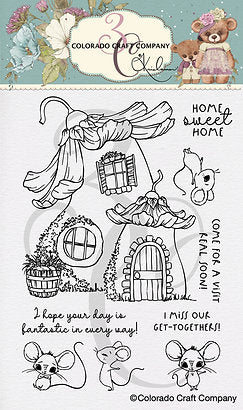 3
COLORADO CRAFT COMPANY
HOME
sweet
HOME
COME FOR A VISIT
REAL SOON!
I hope your day is
fantastic in every way!
I MISS OUR
GET-TOGETHERS!
©Colorado Craft Company